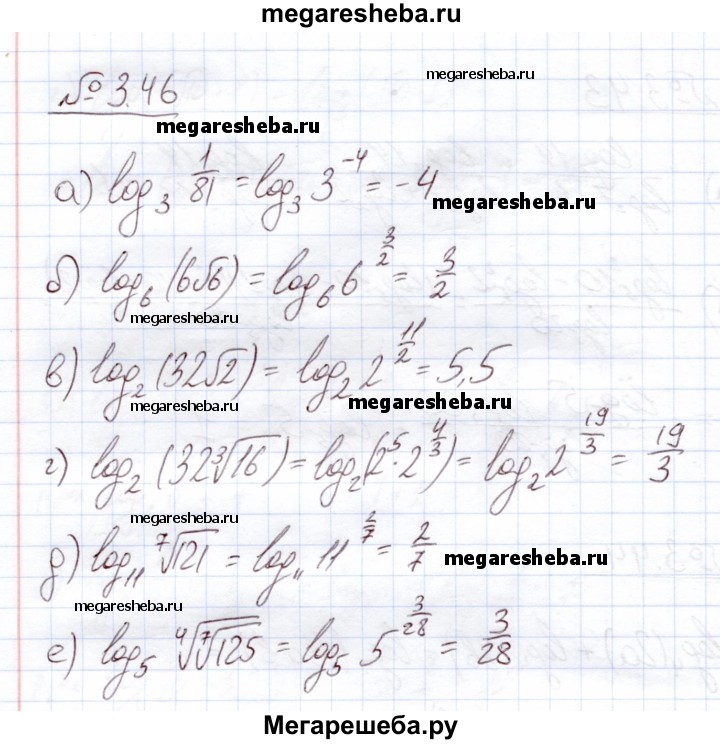 megaresheba.ru
megaresheba.ru
№ 3.46
megaresheba.ru
а) log₃ 1/81 = log₃ 3⁻⁴ = -4
megaresheba.ru
б) log₆ (6√6) = log₆ 6^(3/2) = 3/2
megaresheba.ru
в) log₂ (32√2) = log₂ 2^(11/2) = 5,5
megaresheba.ru megaresheba.ru
г) log₂ (32∛16) = log₂ (2⁵·2^(4/3)) = log₂ 2^(19/3) = 19/3
megaresheba.ru
д) log₁₁ ⁷√121 = log₁₁ 11^(2/7) = 2/7
megaresheba.ru
megaresheba.ru
е) log₅ ⁴√(⁷√125) = log₅ 5^(3/28) = 3/28
Мегарешеба.ру